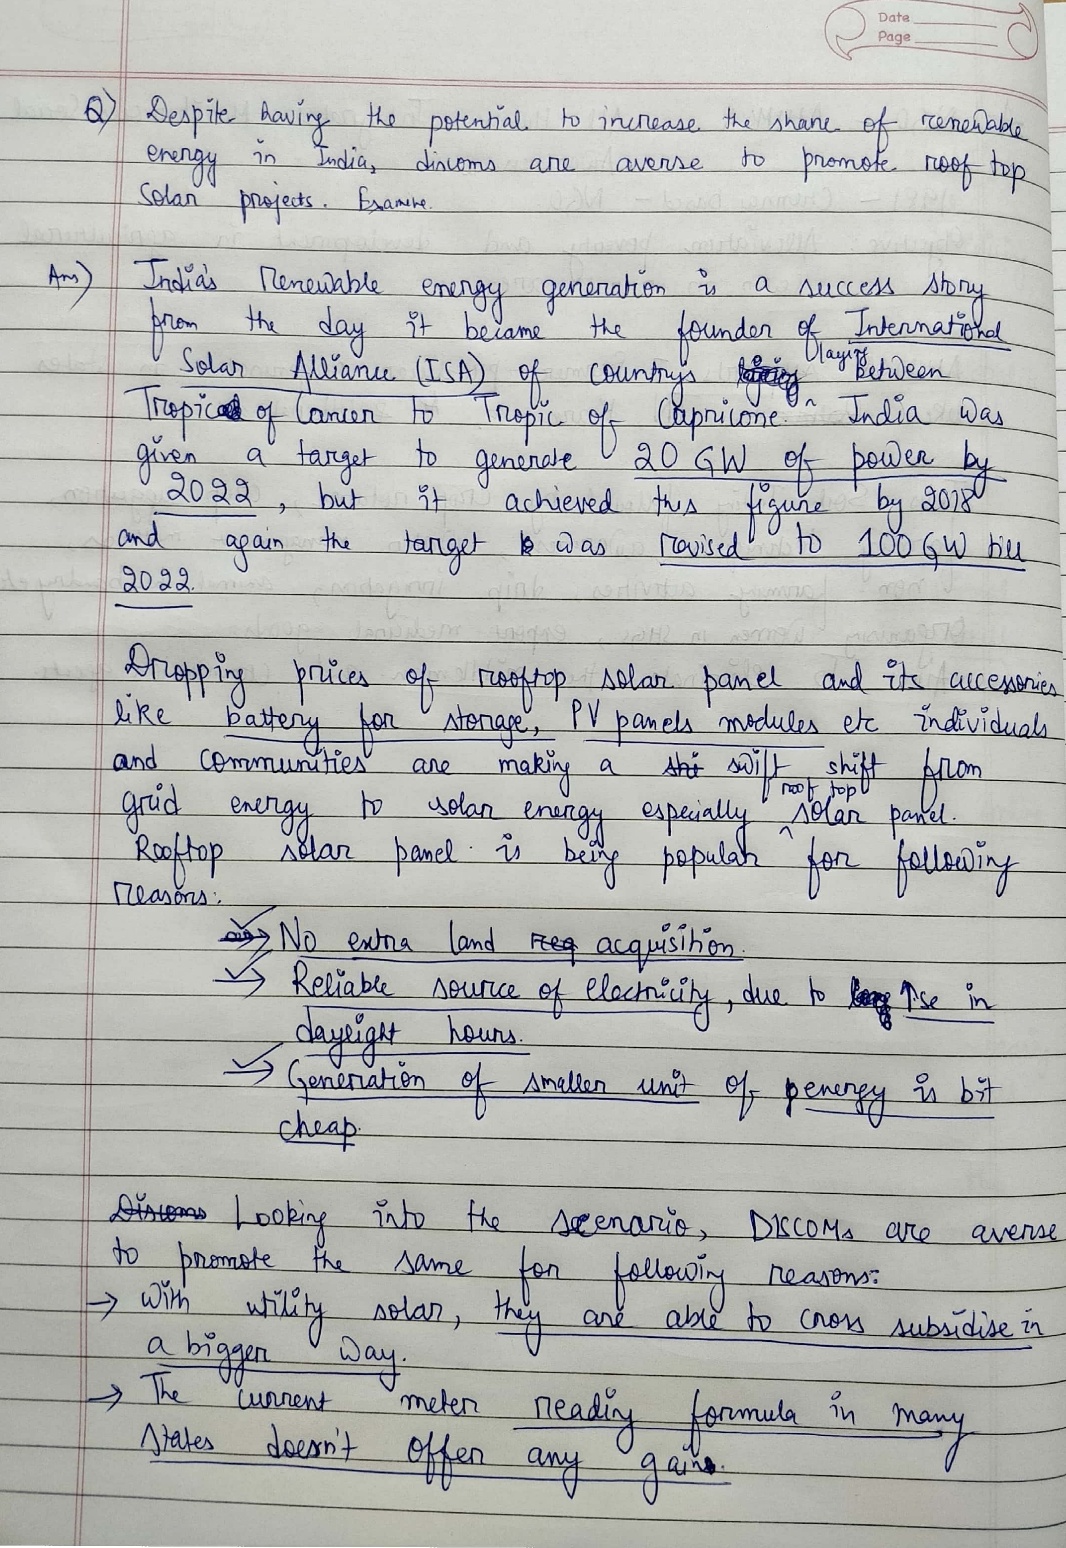 Date
Page
Q) Despite having the potential to increase the share of renewable
energy in India, discoms are averse to promote roof top
Solar projects. Examine.
Ans) India's Renewable energy generation is a success story
from the day it became the founder of International
Solar Alliance (ISA) of countrys laying between
Tropic of Cancer to Tropic of Capricone. India was
given a target to generate 20 GW of power by
2022, but it achieved this figure by 2018
and again the target was revised to 100 GW till
2022.
Dropping prices of rooftop solar panel and its accessories
like battery for storage, PV panels modules etc individuals
and communities are making a swift shift from
grid energy to solar energy especially roof top solar panel.
Rooftop solar panel is being popular for following
reasons:
→ No extra land acquisition.
→ Reliable source of electricity, due to ↑se in
daylight hours.
→ Generation of smaller unit of energy is bit
cheap.
Looking into the scenario, DISCOMs are averse
to promote the same for following reasons:
→ With utility solar, they are able to cross subsidise in
a bigger way.
→ The current meter reading formula in many
states doesn't offer any gains.